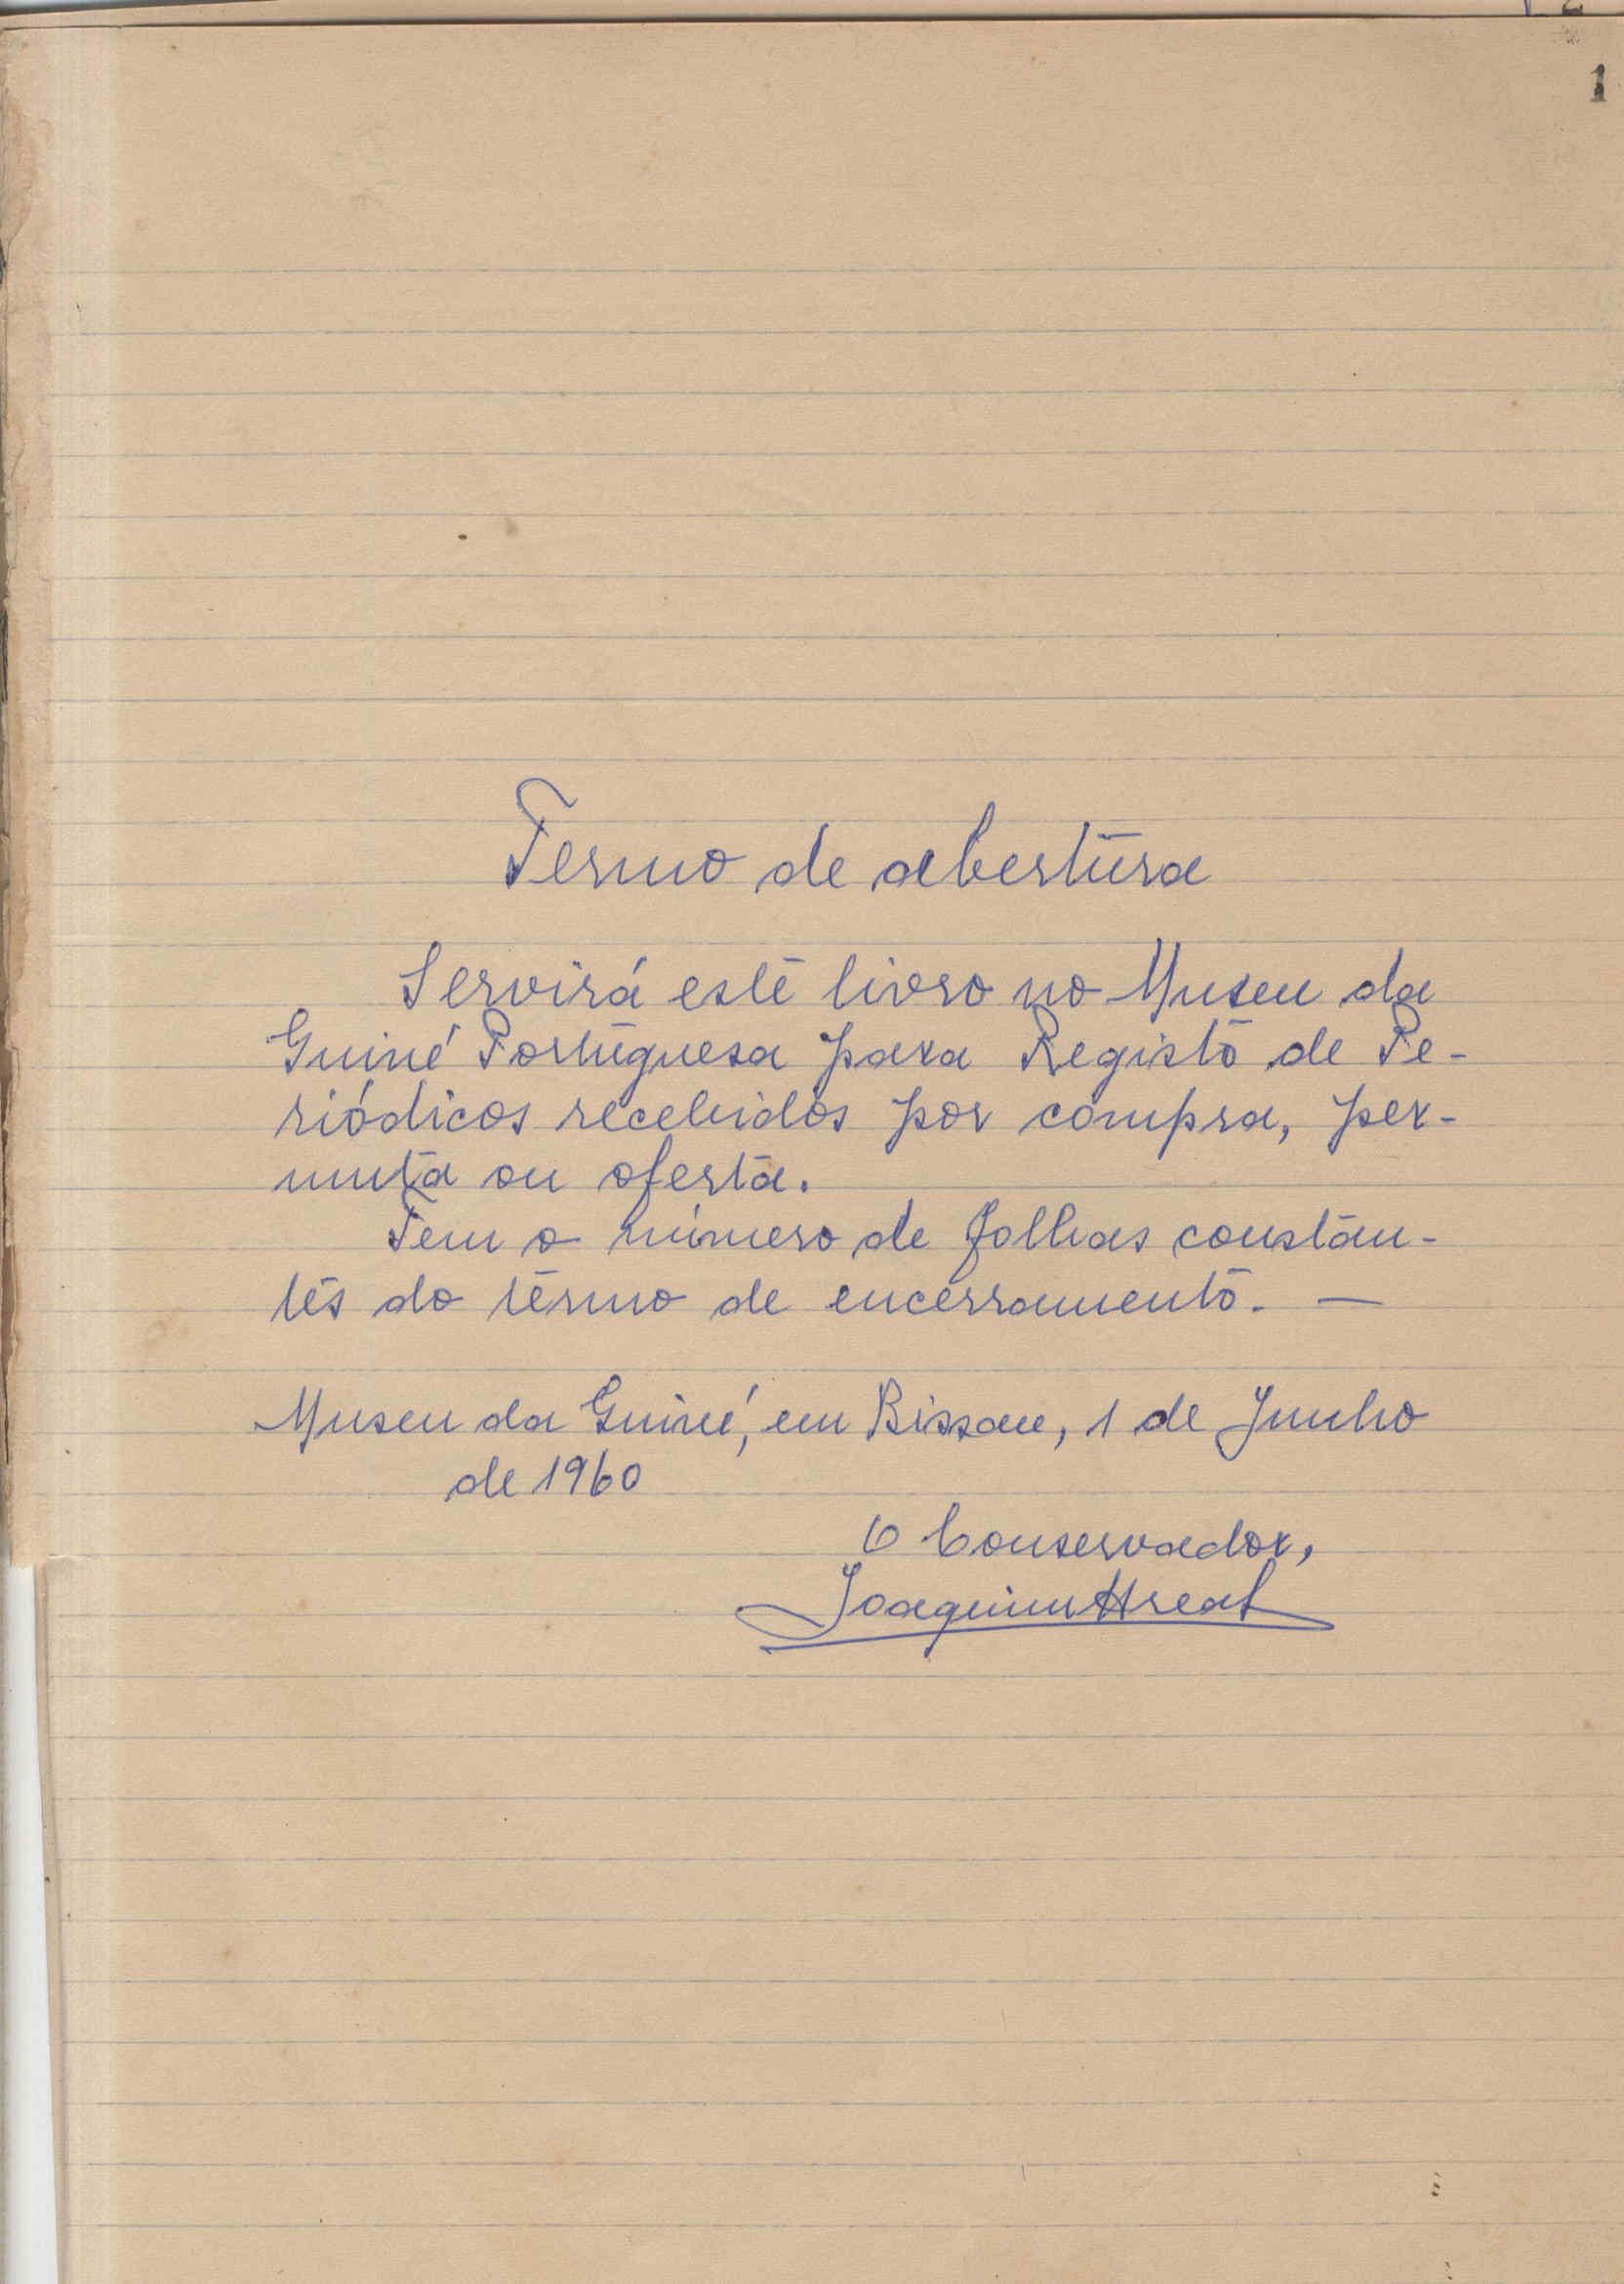 1
Termo de abertura
Servirá este livro no Museu da
Guiné Portuguesa para Registo de Pe-
riódicos recebidos por compra, per-
muta ou oferta.
Tem o número de folhas constan-
tes do têrmo de encerramento. —
Museu da Guiné, em Bissau, 1 de Junho
de 1960
O Conservador,
Joaquim Areal